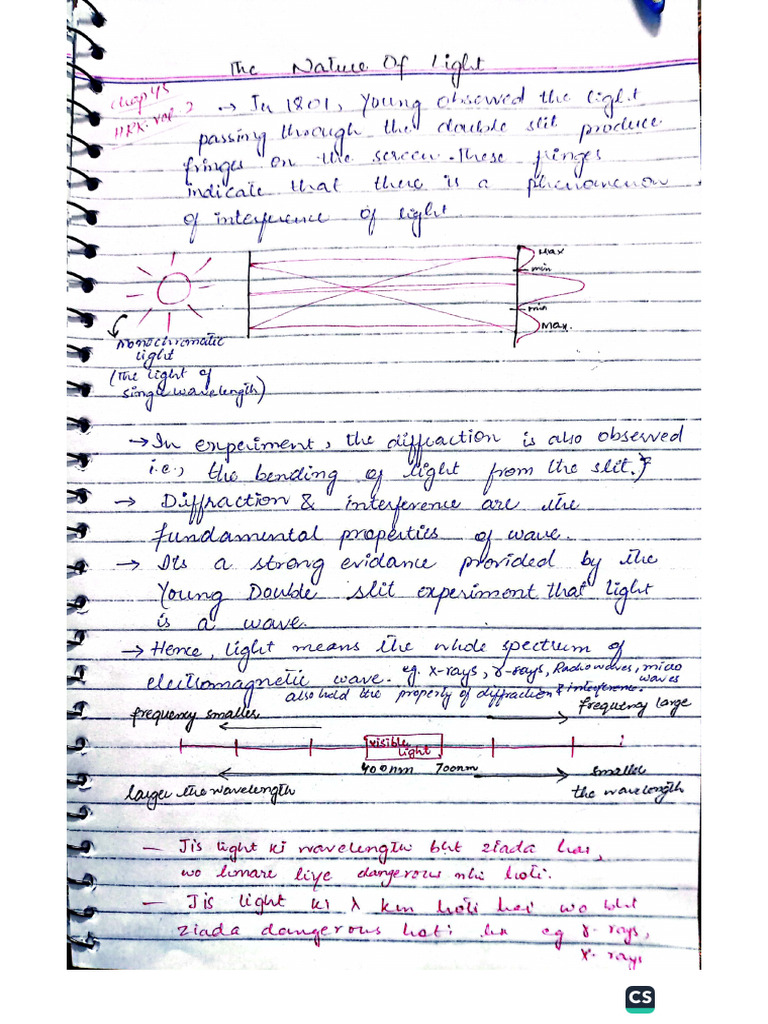 The Nature Of Light
Chap 45
HRK. vol. 2
→ In 1801, Young observed the light
passing through the double slit produce
fringes on the screen. These fringes
indicate that there is a phenomenon
of interference of light.
Max
min
min
Max.
Monochromatic
light
(The light of
single wavelength)
→ In experiment, the diffraction is also observed
i.e., the bending of light from the slit.}
→ Diffraction & interference are the
fundamental properties of wave.
→ Its a strong evidance provided by the
Young Double slit experiment that light
is a wave.
→ Hence, light means the whole spectrum of
electromagnetic wave. eg. X-rays, γ-rays, Radiowaves, micro
waves
also hold the property of diffraction & interference.
frequency smaller
frequency large
visible
light
400nm 700nm
larger the wavelength
smaller
the wavelength
— Jis light ki wavelength bht ziada hai,
wo humare liye dangerous nhi hoti.
— Jis light ki λ km hoti hai wo bht
ziada dangerous hoti ha eg γ-rays,
x-rays
CS